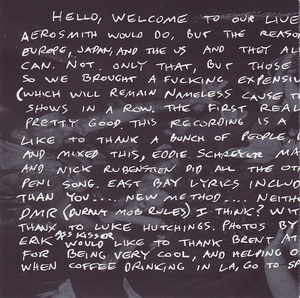 HELLO, WELCOME TO OUR LIVE
AEROSMITH WOULD DO, BUT THE REASO
EUROPE, JAPAN, AND THE US AND THEY AL
CAN. NOT. ONLY THAT, BUT THOSE
SO WE BROUGHT A FUCKING EXPENSI
(WHICH WILL REMAIN NAMELESS CAUSE T
SHOWS IN A ROW. THE FIRST REAL
PRETTY GOOD. THIS RECORDING IS A
LIKE TO THANK A BUNCH OF PEOPLE,
AND MIXED THIS, EDDIE SCHREYER MA
AND NICK RUBENSTIEN DID ALL THE OT
PENI SONG. EAST BAY LYRICS INCLU
THAN YOU.... NEW METHOD.... NEITH
DMR (DURANT MOB RULES) I THINK? WIT
THANX TO LUKE HUTCHINGS. PHOTOS BY
ERIK ASS KISSER WOULD LIKE TO THANK BRENT AT
FOR BEING VERY COOL, AND HELPING O
WHEN COFFEE DRINKING IN LA, GO TO SP